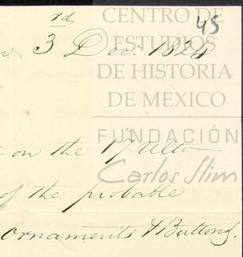 45
CENTRO DE
ESTUDIOS
DE HISTORIA
DE MÉXICO
FUNDACIÓN
Carlos Slim
3rd Dec. 1824
on the 17 ulto
of the probable
ornaments & Buttons.